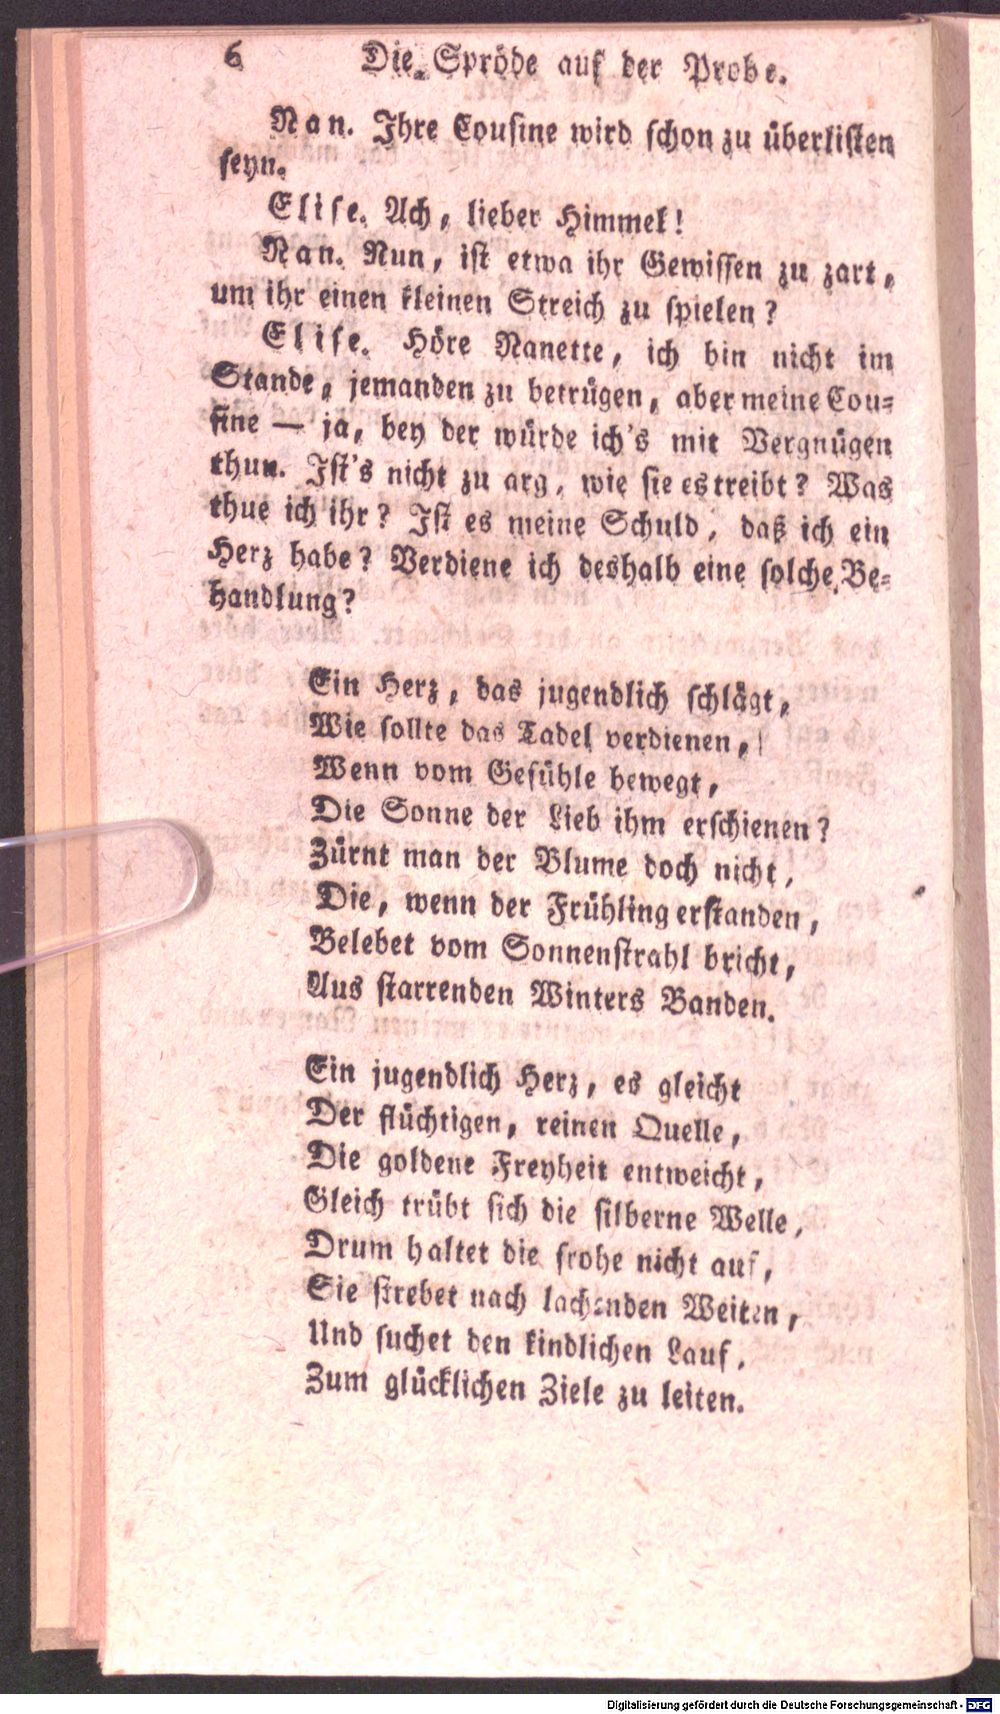 6 Die Spröde auf der Probe.
Nan. Ihre Cousine wird schon zu überlisten
seyn.
Elise. Ach, lieber Himmel!
Nan. Nun, ist etwa ihr Gewissen zu zart,
um ihr einen kleinen Streich zu spielen?
Elise. Höre Nanette, ich bin nicht im
Stande, jemanden zu betrügen, aber meine Cou-
sine — ja, bey der würde ich's mit Vergnügen
thun. Ist's nicht zu arg, wie sie es treibt? Was
thue ich ihr? Ist es meine Schuld, daß ich ein
Herz habe? Verdiene ich deshalb eine solche Be-
handlung?
Ein Herz, das jugendlich schlägt,
Wie sollte das Tadel verdienen,
Wenn vom Gefühle bewegt,
Die Sonne der Lieb ihm erschienen?
Zürnt man der Blume doch nicht,
Die, wenn der Frühling erstanden,
Belebet vom Sonnenstrahl bricht,
Aus starrenden Winters Banden.
Ein jugendlich Herz, es gleicht
Der flüchtigen, reinen Quelle,
Die goldene Freyheit entweicht,
Gleich trübt sich die silberne Welle,
Drum haltet die frohe nicht auf,
Sie strebet nach lachenden Weiten,
Und suchet den kindlichen Lauf,
Zum glücklichen Ziele zu leiten.
Digitalisierung gefördert durch die Deutsche Forschungsgemeinschaft - DFG